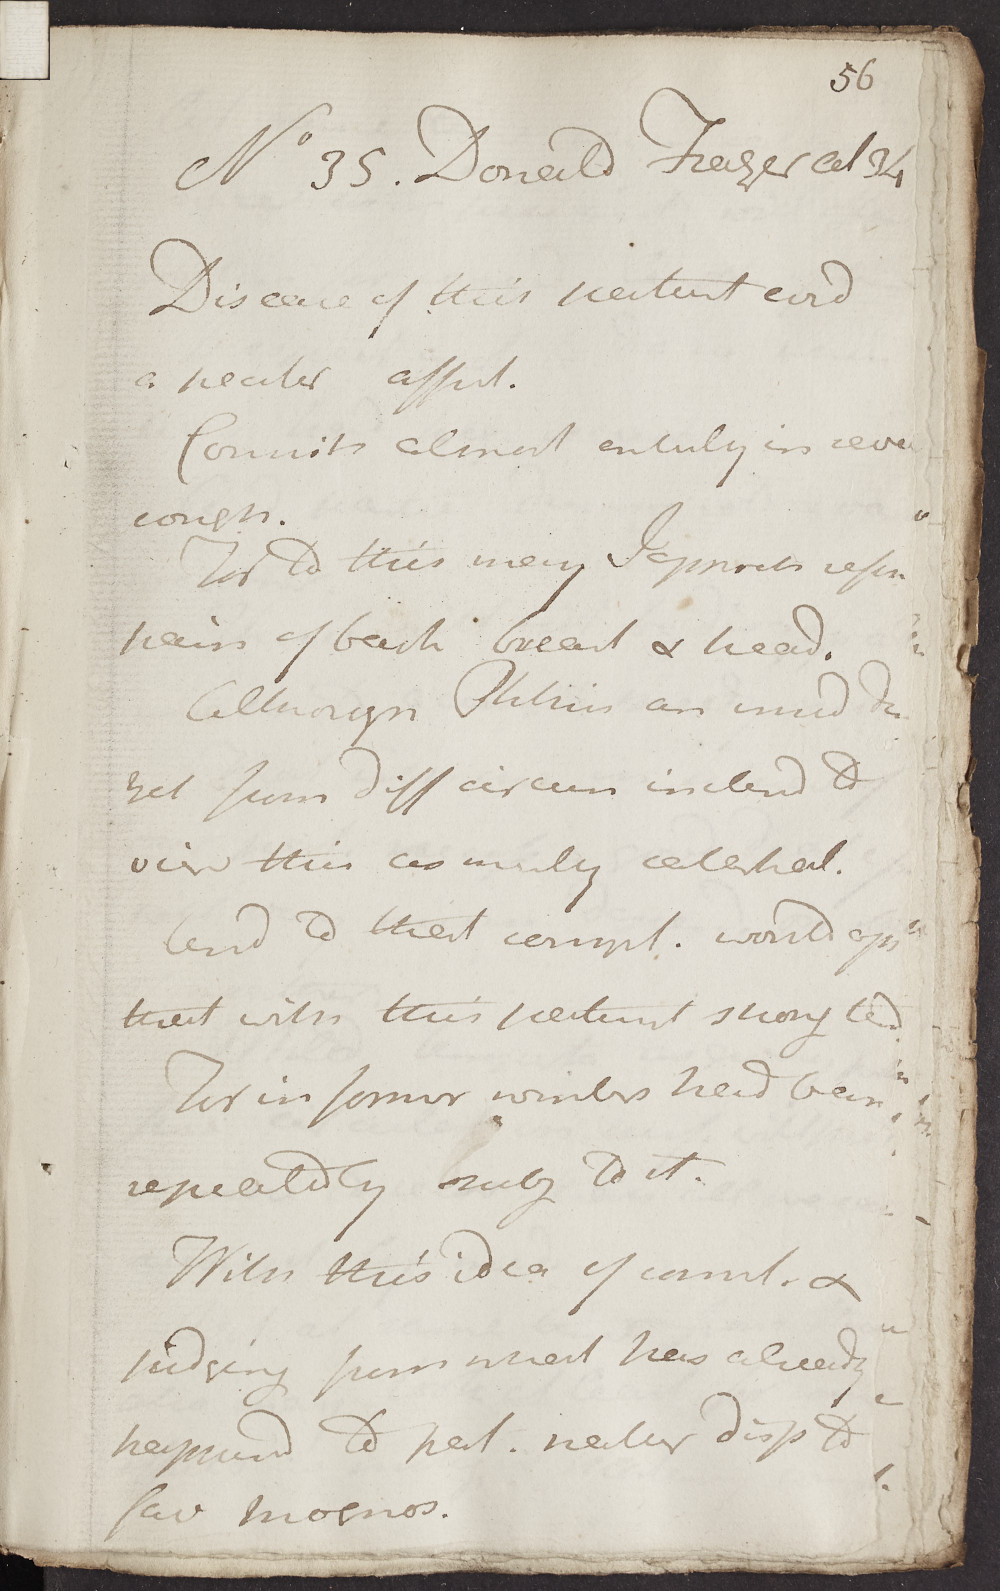 56
No 35. Donald Frazer aet 34
Disease of this patient cord
a peculiar affect.
Consists almost entirely in seve
cough.
For to this may I appreh refer
pain of back breast & head.
Altho<sup>ugh</sup> Phthisis an
yet from diff circum inclind to
view this as merely catarrhal.
And to that compt. would app
that with this patient strong tend
For in former winters had been
repeatedly subj to it.
With this idea of compl. &
judging from what has already
happend to pat. rather disp to
fav prognos.